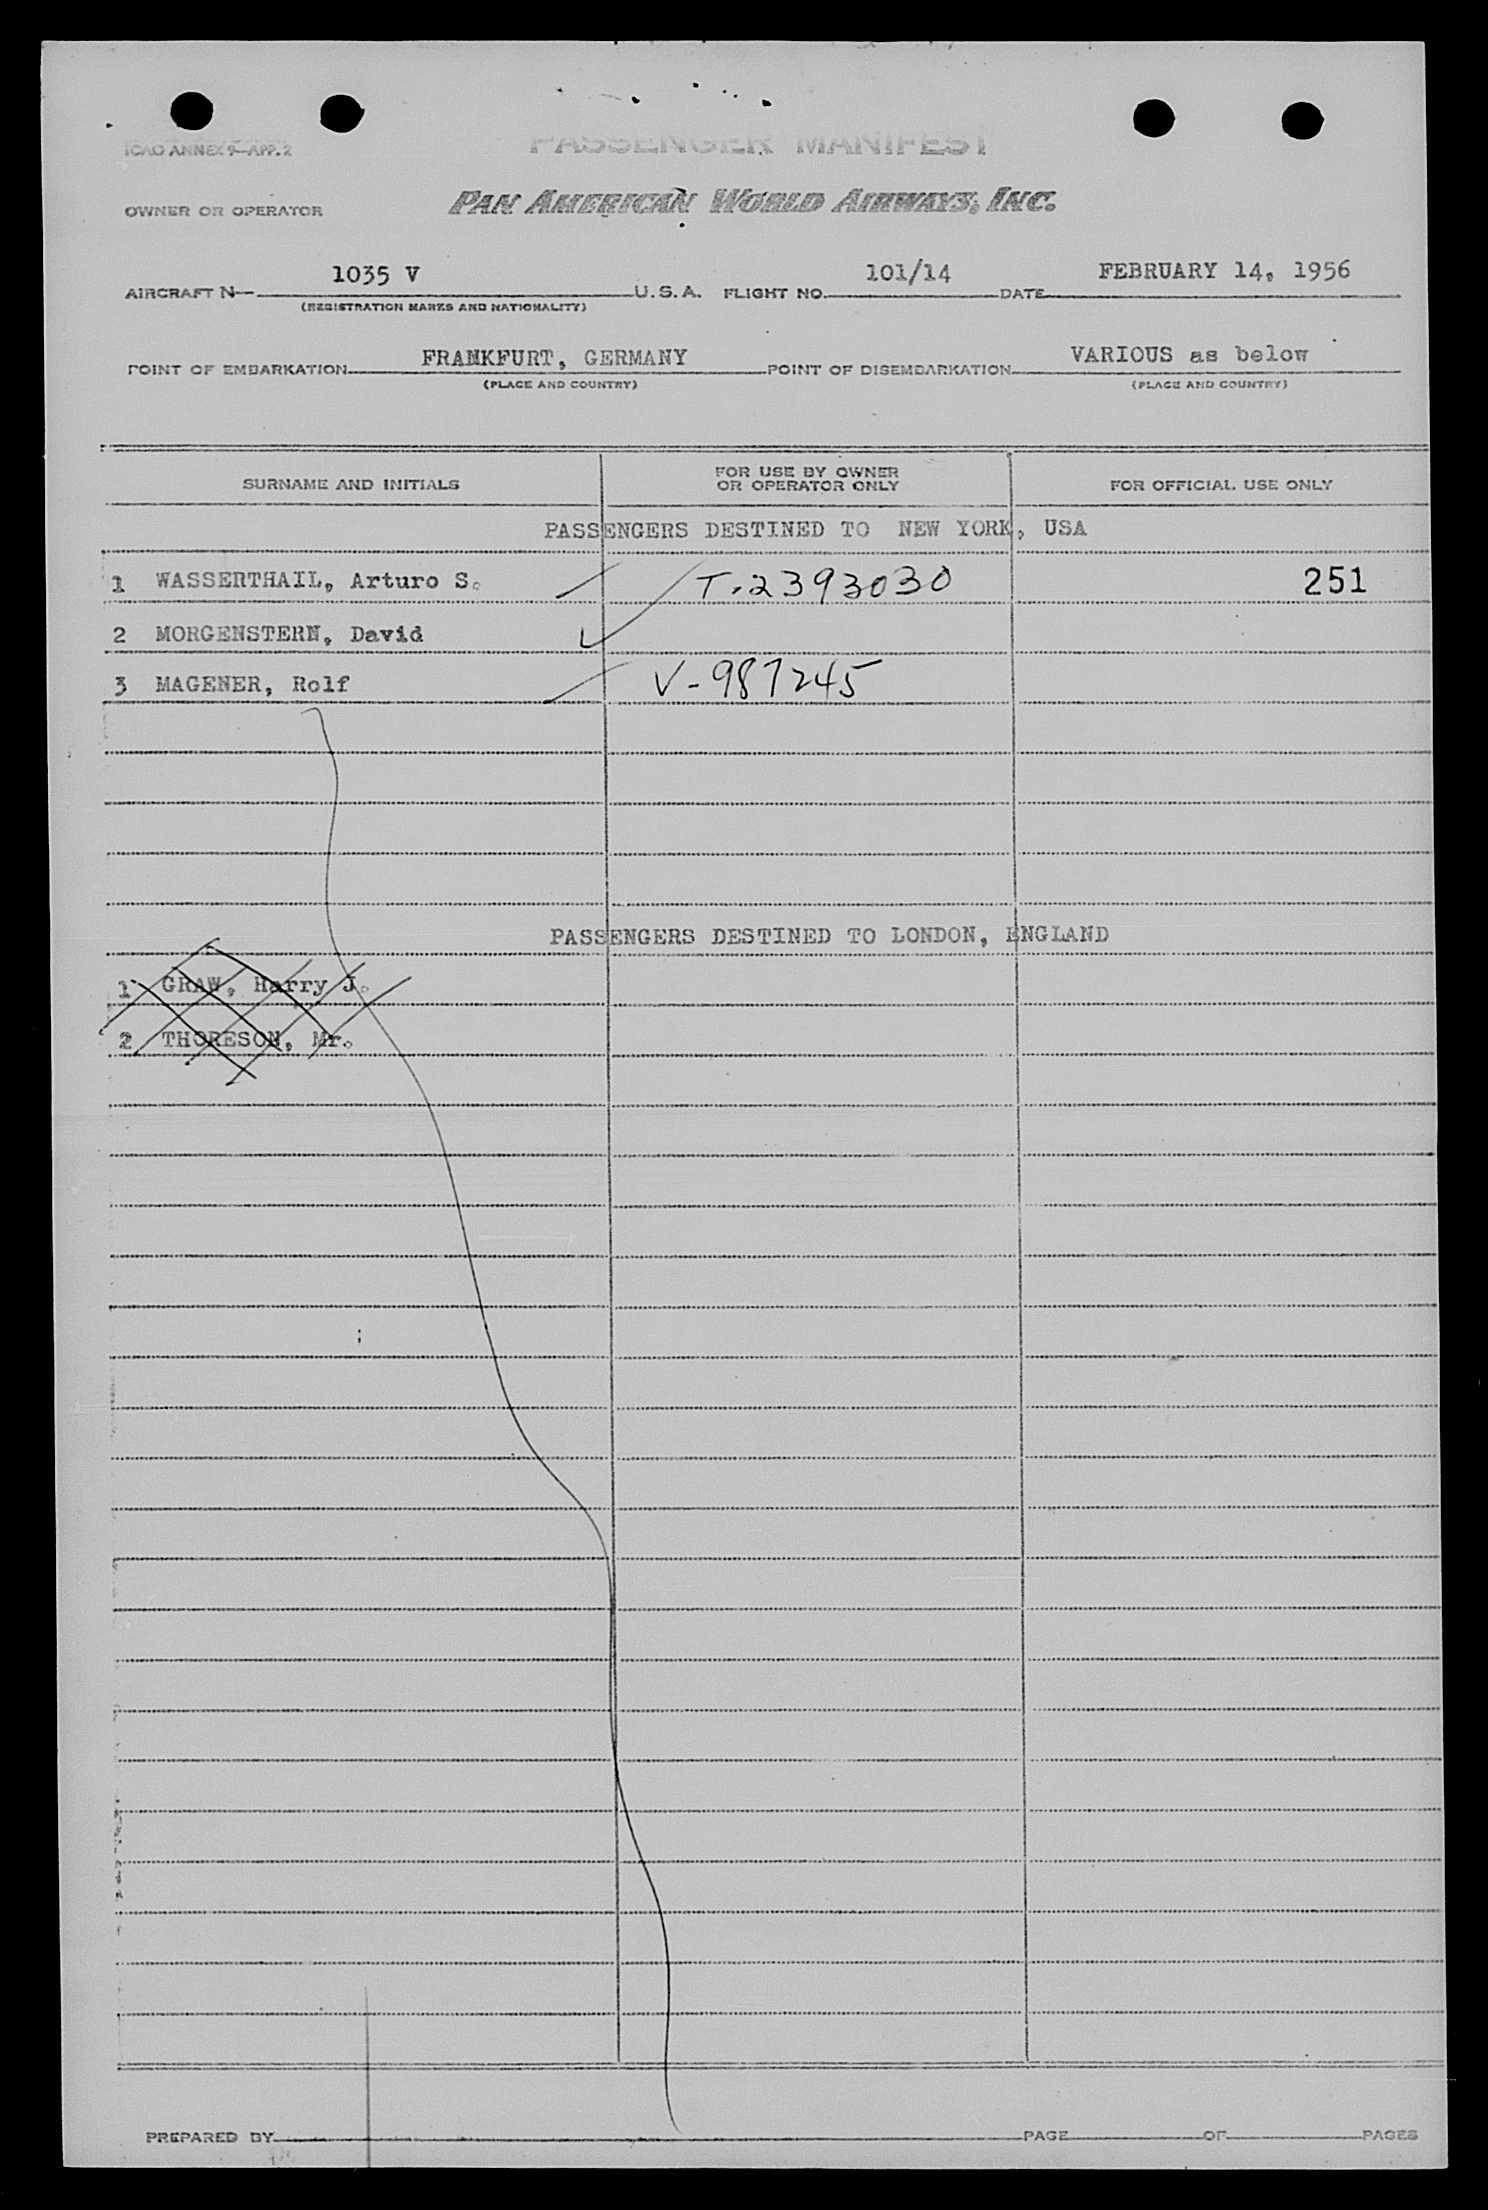 ICAO ANNEX 9—APP. 2
PASSENGER MANIFEST
OWNER OR OPERATOR PAN AMERICAN WORLD AIRWAYS, INC.
AIRCRAFT N— 1035 V U.S.A. FLIGHT NO. 101/14 DATE FEBRUARY 14, 1956
(REGISTRATION MARKS AND NATIONALITY)
POINT OF EMBARKATION FRANKFURT, GERMANY POINT OF DISEMBARKATION VARIOUS as below
(PLACE AND COUNTRY) (PLACE AND COUNTRY)
SURNAME AND INITIALS FOR USE BY OWNER OR OPERATOR ONLY FOR OFFICIAL USE ONLY
PASSENGERS DESTINED TO NEW YORK, USA
1 WASSERTHAIL, Arturo S. T-2393030 251
2 MORGENSTERN, David
3 MAGENER, Rolf V-987245
PASSENGERS DESTINED TO LONDON, ENGLAND
1 GRAW, Harry J.
2 THORESON, Mr.
PREPARED BY PAGE OF PAGES